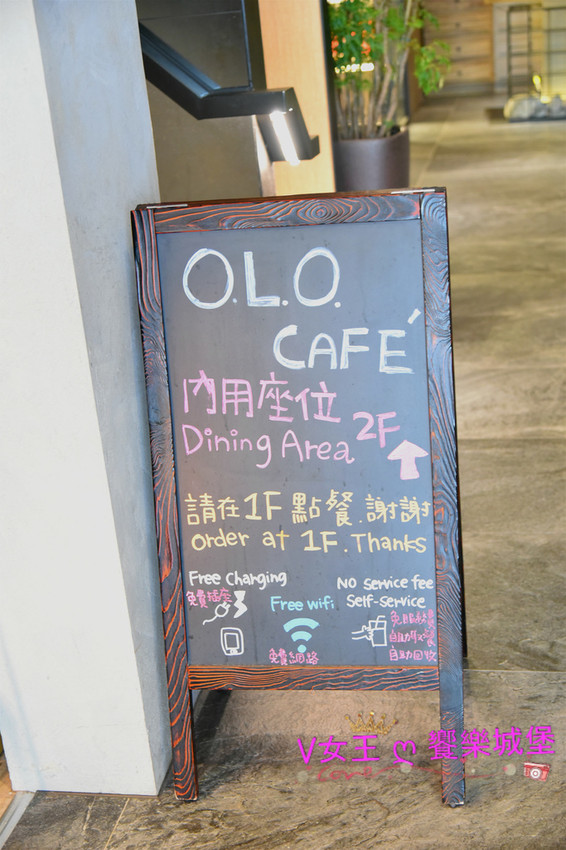 O.L.O.
CAFÉ
內用座位 2F
Dining Area
請在1F點餐.謝謝
order at 1F. Thanks
Free Charging
免費插座
Free wifi
免費網路
No service fee
Self-service
免服務費
自助取餐
自助回收
V女王 ღ 饗樂城堡
Love